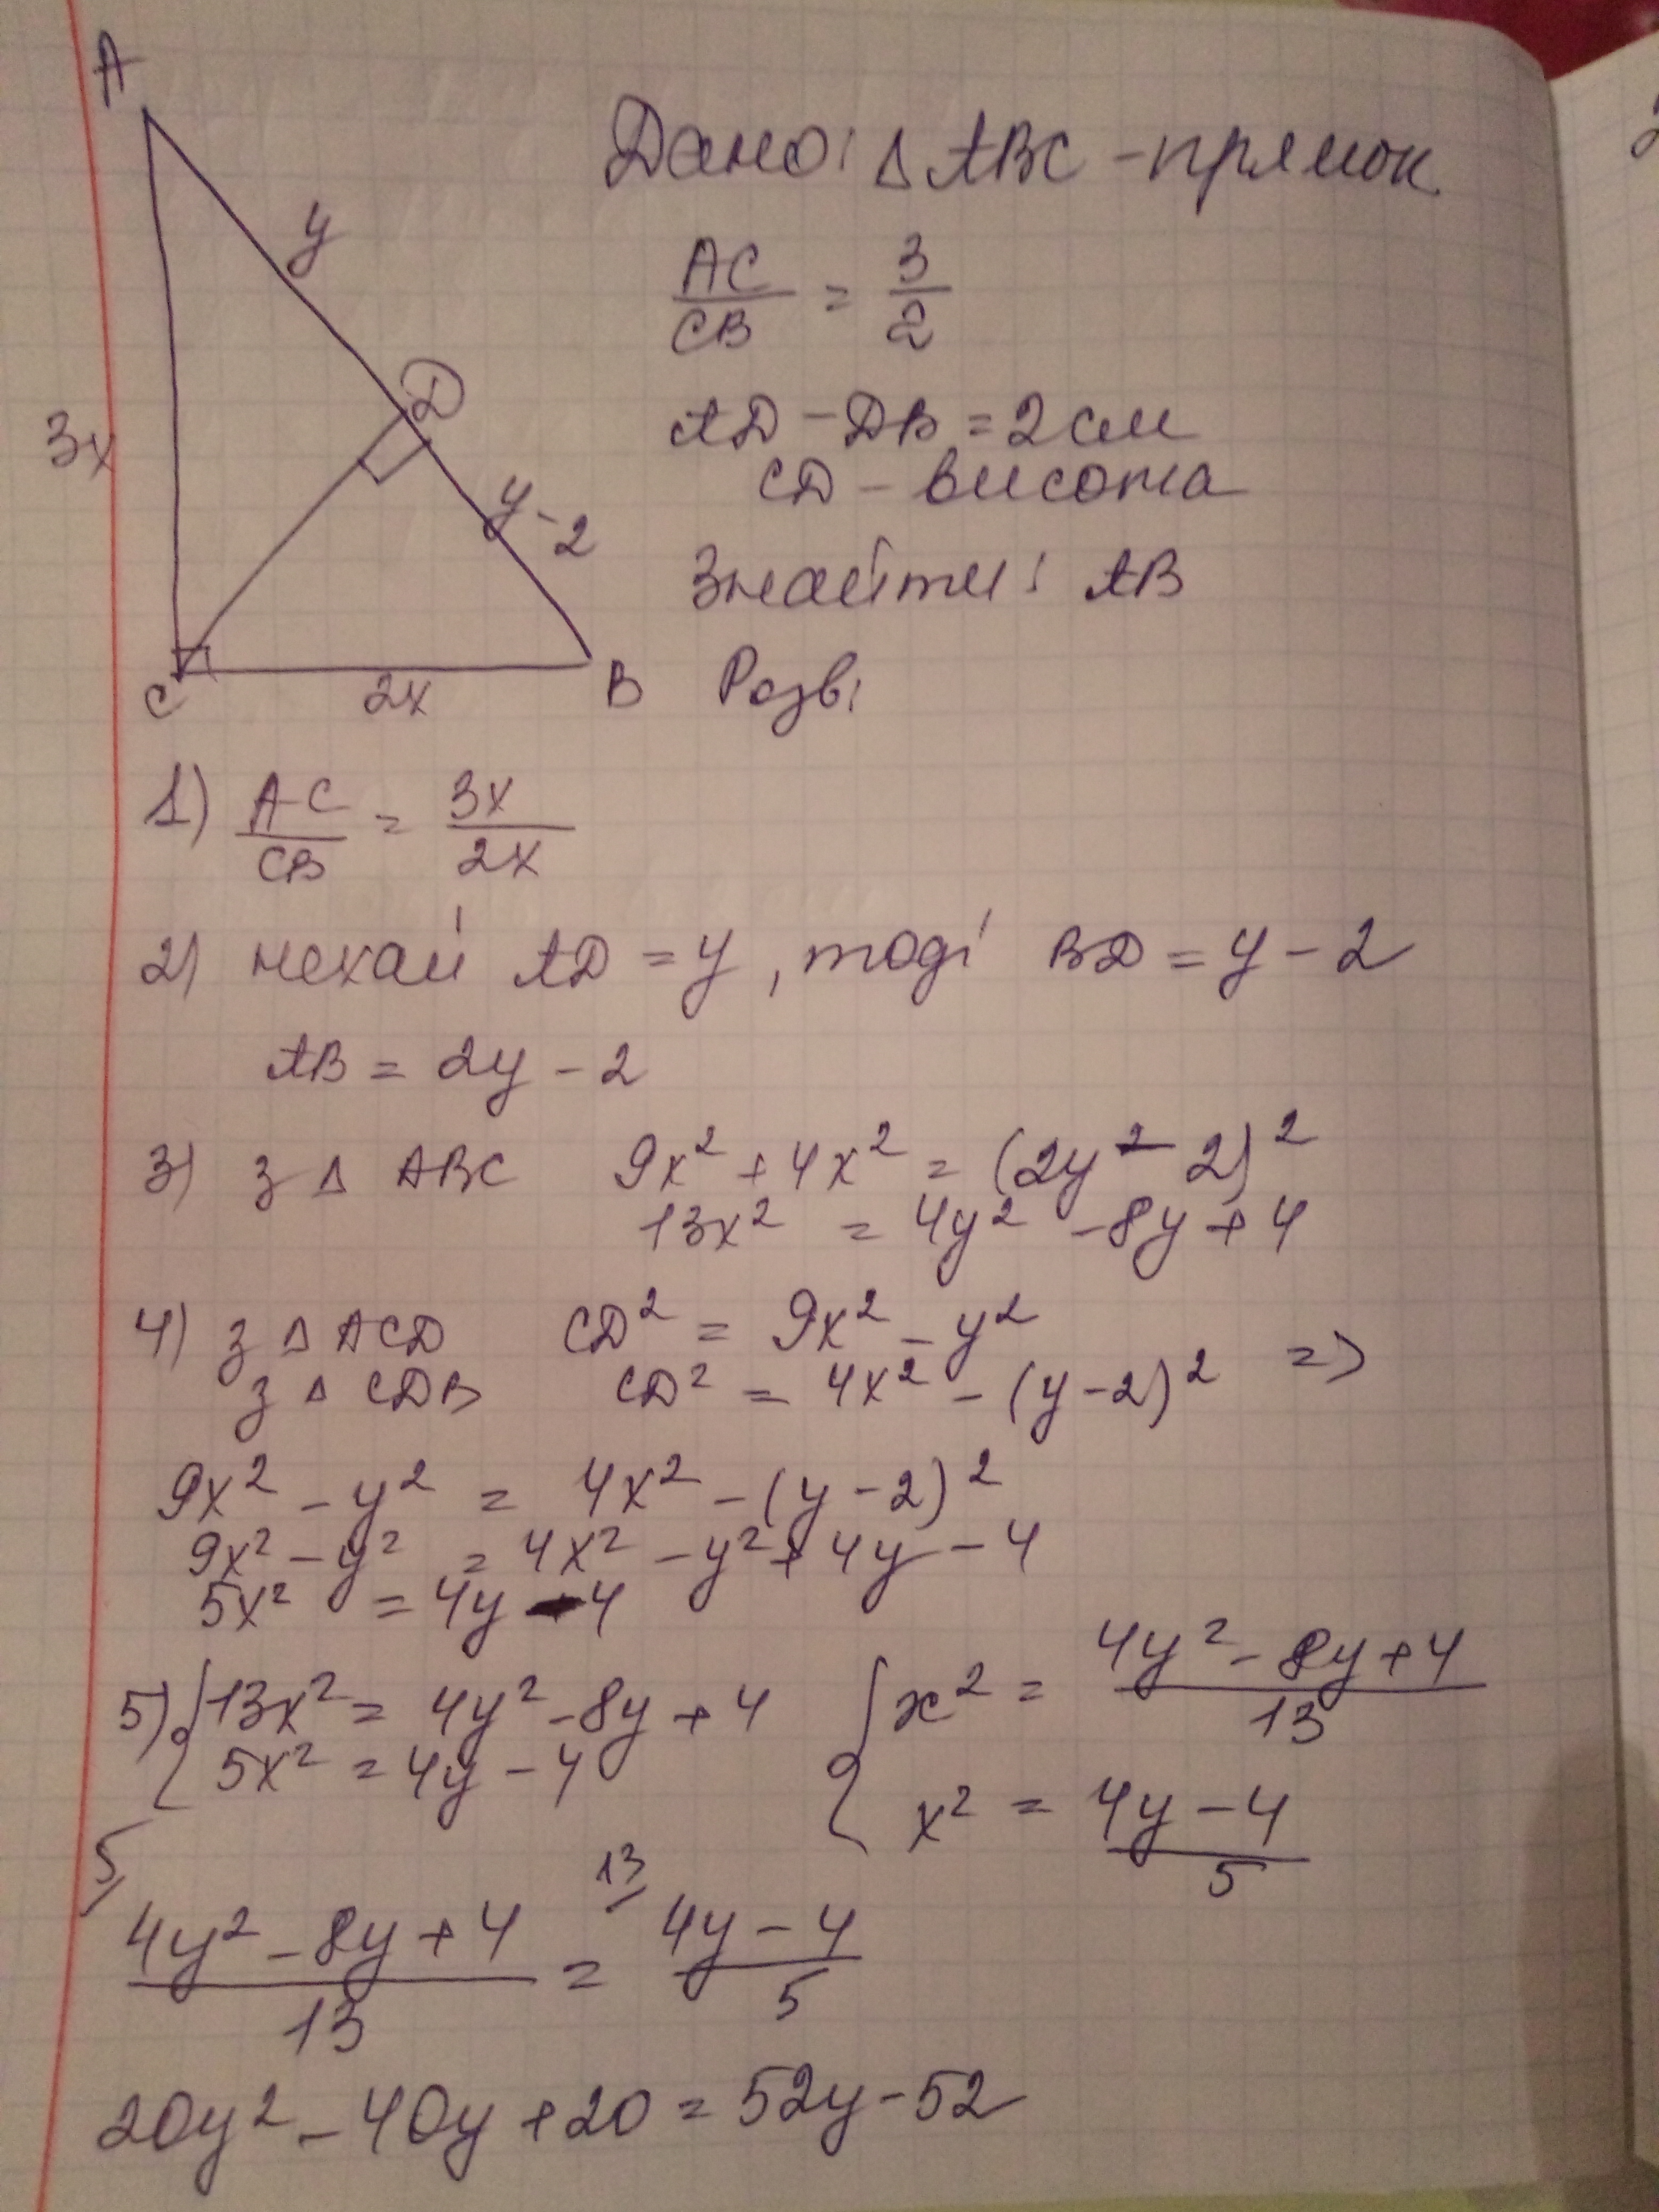 A
y
D
3x
y-2
C
2x
B
Дано: Δ ABC - прямок.
AC/CB = 3/2
AD - DB = 2 см
CD - висота
Знайти: AB
Розв:
1) AC/CB = 3x/2x
2) нехай AD = y, тоді BD = y - 2
AB = 2y - 2
3) з Δ ABC 9x² + 4x² = (2y - 2)²
13x² = 4y² - 8y + 4
4) з Δ ACD CD² = 9x² - y²
з Δ CDB CD² = 4x² - (y-2)² =>
9x² - y² = 4x² - (y-2)²
9x² - y² = 4x² - y² + 4y - 4
5x² = 4y - 4
5) { 13x² = 4y² - 8y + 4 { x² = (4y² - 8y + 4)/13
5x² = 4y - 4 x² = (4y - 4)/5
5/ 13/
(4y² - 8y + 4)/13 = (4y - 4)/5
20y² - 40y + 20 = 52y - 52